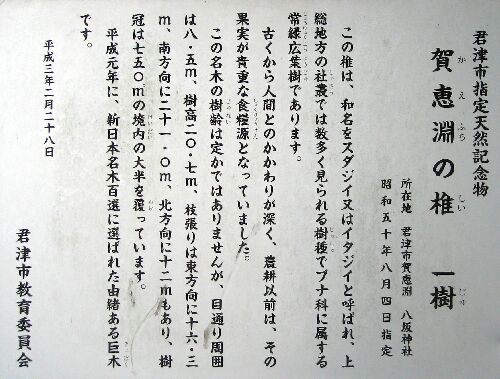 君津市指定天然記念物
賀恵淵の椎　一樹
かえふち　しい　じゅ
所在地　君津市賀恵淵　八坂神社
昭和五十年八月四日指定
この椎は、和名をスダジイ又はイタジイと呼ばれ、上
総地方の社叢では数多く見られる樹種でブナ科に属する
常緑広葉樹であります。
古くから人間とのかかわりが深く、農耕以前は、その
果実が貴重な食糧源となっていました。
この名木の樹齢は定かではありませんが、目通り周囲
は八・五m、樹高二〇・七m、枝張りは東方向に十六・三
m、南方向に二十一・〇m、北方向に十二mもあり、樹
冠は七五〇㎡の境内の大半を覆っています。
平成元年に、新日本名木百選に選ばれた由緒ある巨木
です。
平成三年二月二十八日
君津市教育委員会